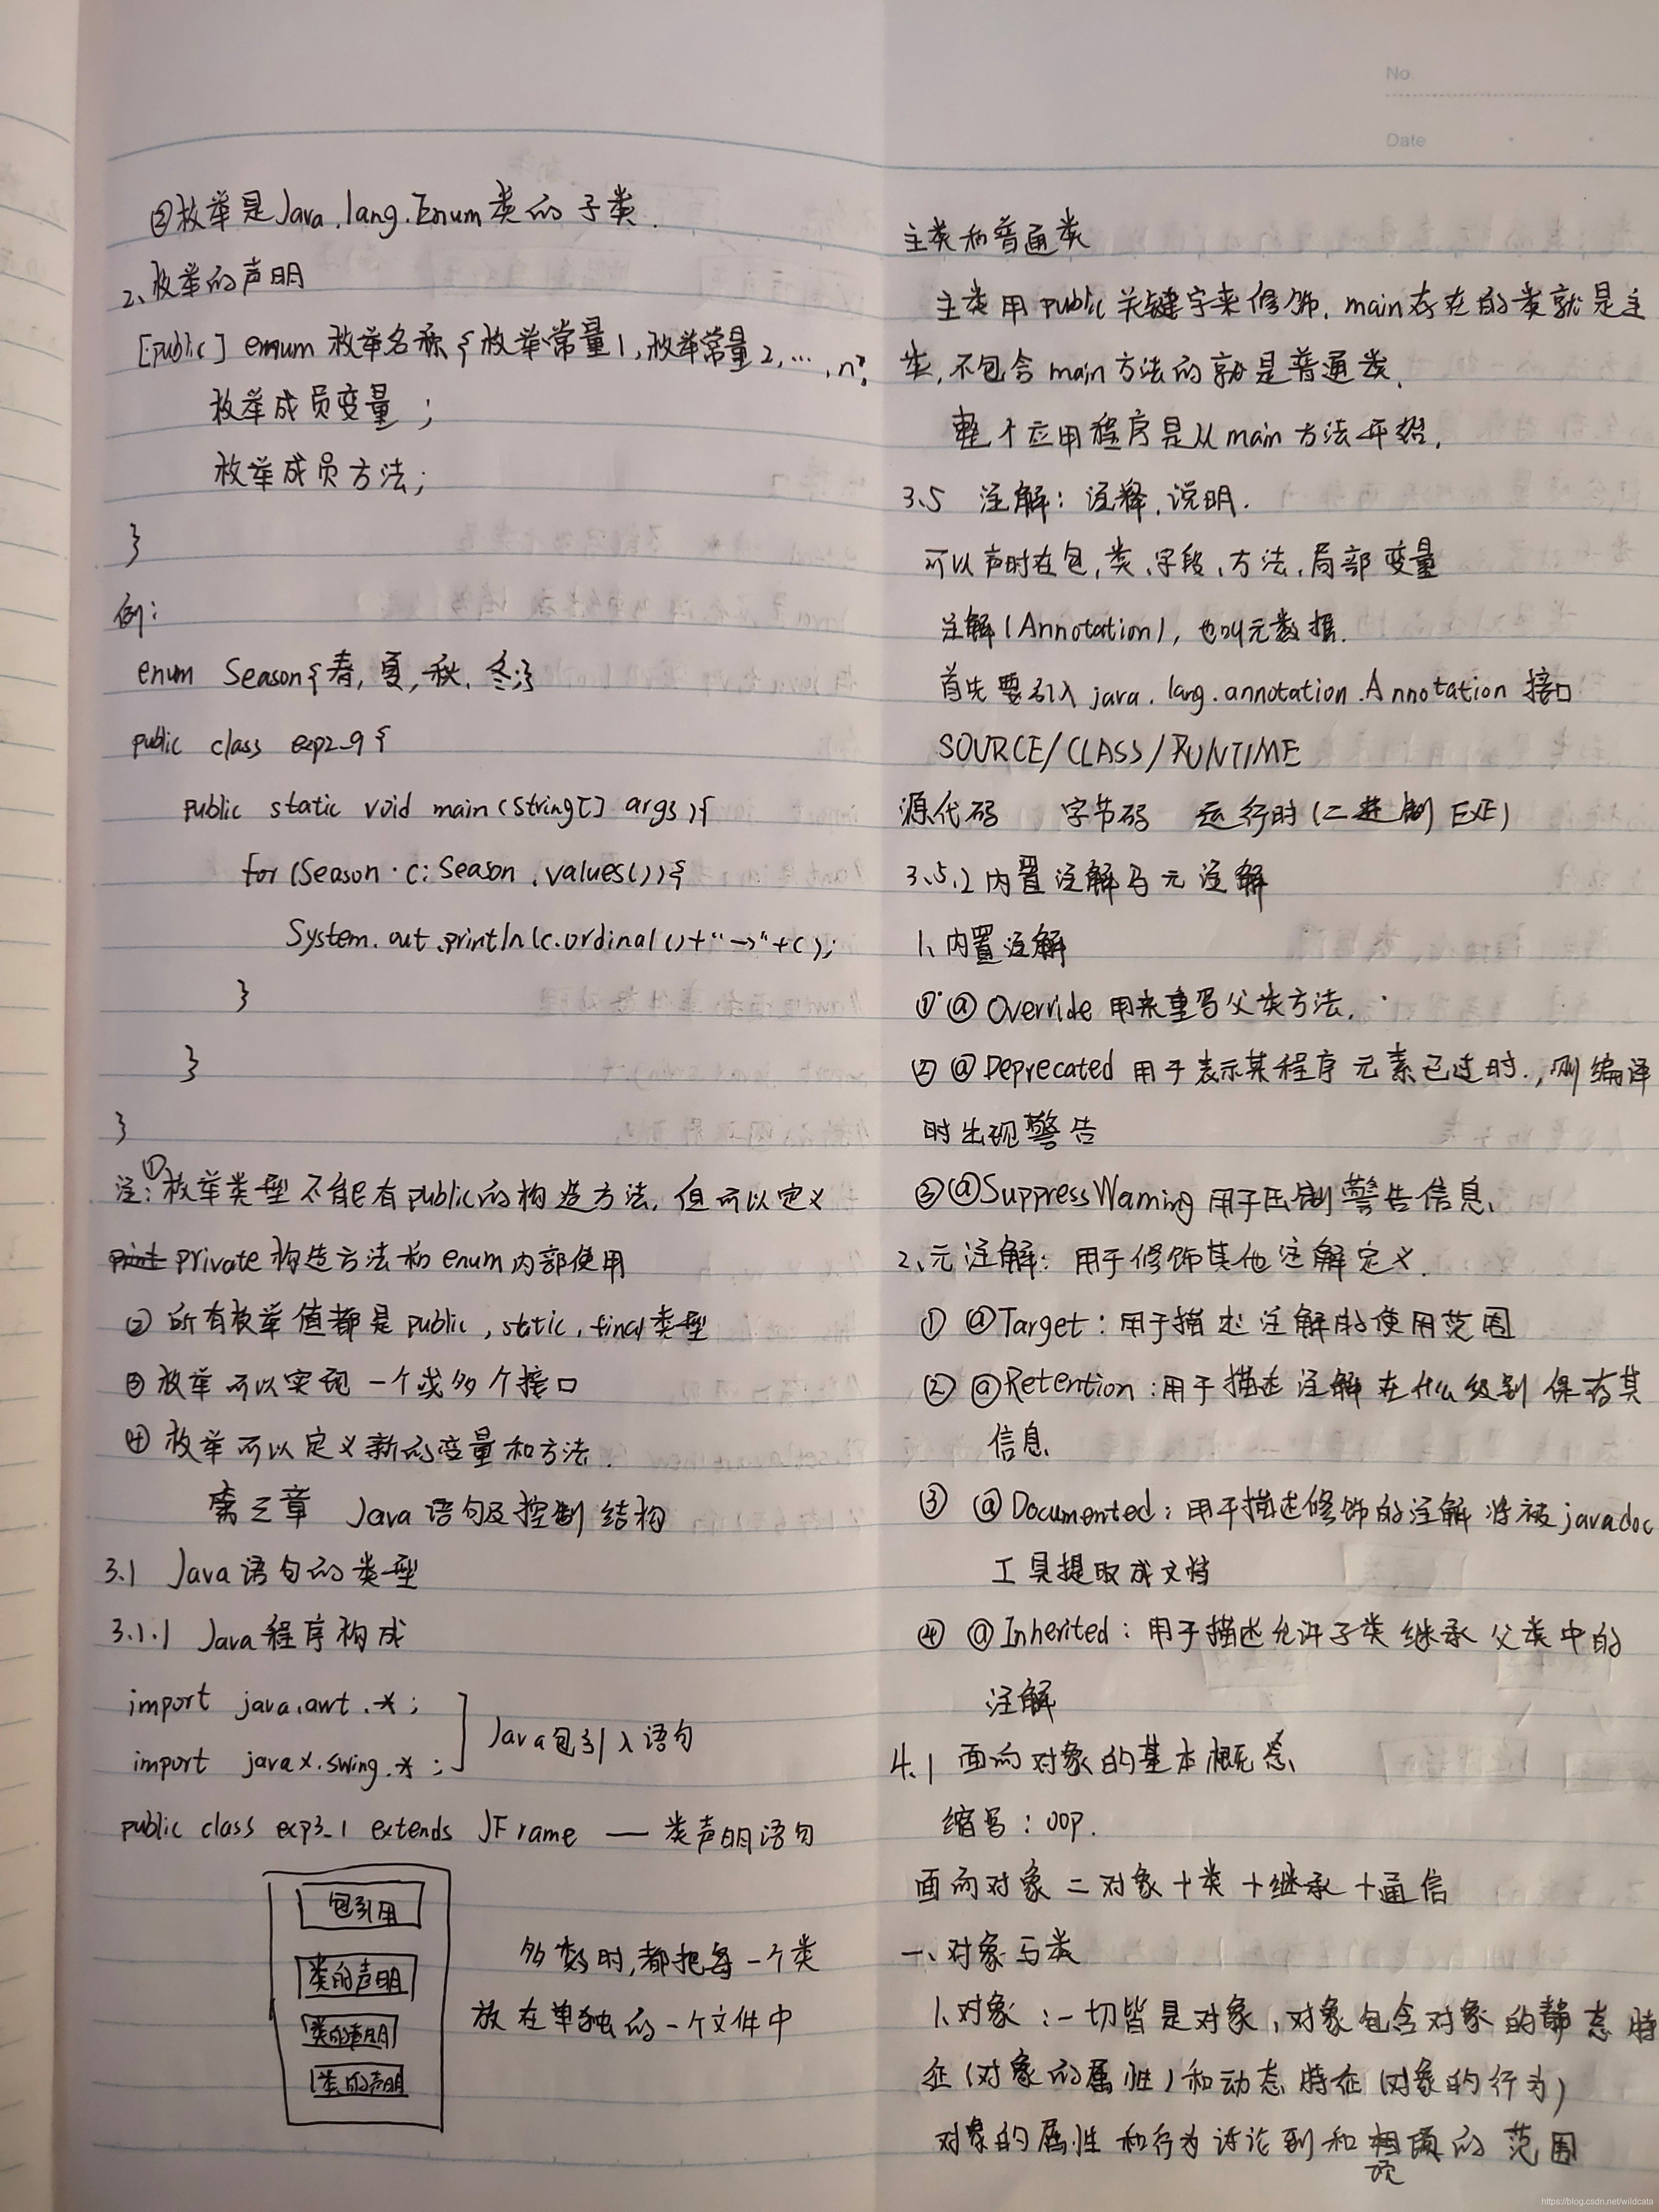 ③枚举是Java.lang.Enum类的子类.
2、枚举的声明
[public] enum 枚举名称{枚举常量1,枚举常量2,…,n;
枚举成员变量;
枚举成员方法;
}
例:
enum Season{春,夏,秋,冬;}
public class exp2_9{
public static void main(String[] args){
for(Season c:Season.values()){
System.out.println(c.ordinal()+"→"+c);
}
}
}
注:①枚举类型不能有public的构造方法,但可以定义
private构造方法和enum内部使用
② 所有枚举值都是public,static,final类型
③ 枚举可以实现一个或多个接口
④ 枚举可以定义新的变量和方法.
第三章 Java语句及控制结构
3.1 Java语句的类型
3.1.1 Java程序构成
import java.awt.*;
import javax.swing.*;
Java包引入语句
public class exp3_1 extends JFrame — 类声明语句
包引用
类的声明
类的声明
类的声明
多数时,都把每一个类
放在单独的一个文件中
No
Date
主类和普通类
主类用public关键字来修饰,main存在的类就是主
类,不包含main方法的就是普通类.
整个应用程序是从main方法开始.
3.5 注解:注释,说明.
可以声明在包,类,字段,方法,局部变量
注解(Annotation),也叫元数据.
首先要引入java.lang.annotation.Annotation接口
SOURCE/CLASS/RUNTIME
源代码 字节码 运行时(二进制EXE)
3.5.2内置注解与元注解
1、内置注解
① @Override 用来重写父类方法.
② @Deprecated 用于表示某程序元素已过时.,则编译
时出现警告
③@SuppressWarning用于压制警告信息.
2、元注解:用于修饰其他注解定义.
① @Target:用于描述注解的使用范围
② @Retention:用于描述注解在什么级别保存其
信息.
③ @Documented:用于描述修饰的注解将被javadoc
工具提取成文档
④ @Inherited:用于描述允许子类继承父类中的
注解
4.1 面向对象的基本概念
缩写:OOP.
面向对象=对象+类+继承+通信
一、对象与类
1.对象:一切皆是对象,对象包含对象的静态特
征(对象的属性)和动态特征(对象的行为)
对象的属性和行为讨论到和的范围
https://blog.csdn.net/wildcata